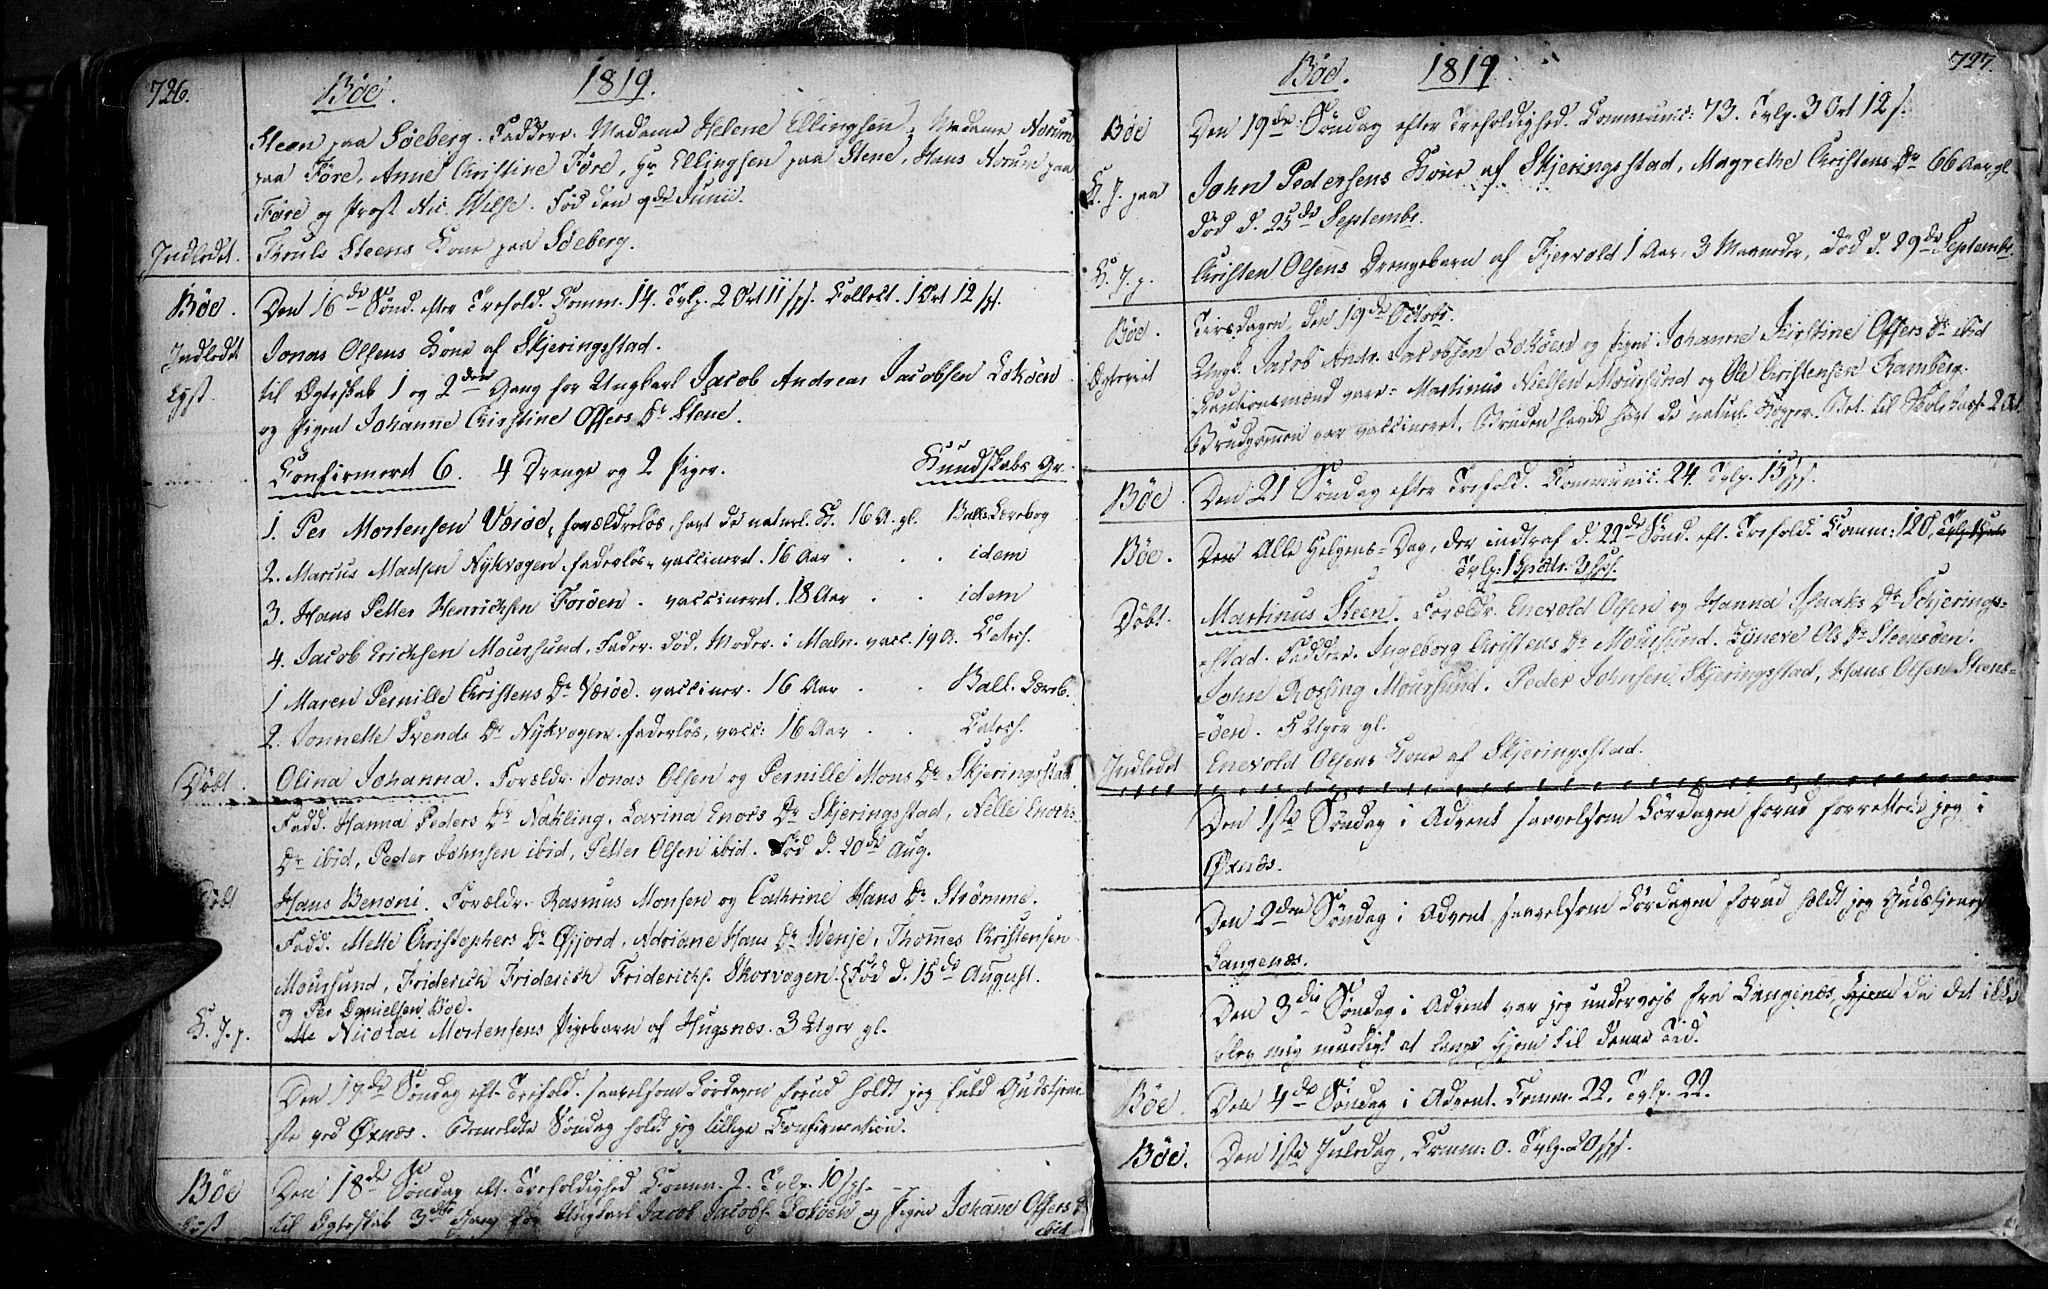 726.
Böe.
1819.
Steen paa Söeberg. Faddere. Madame Helene Ellingsen, Madame Norum
paa Före, Anne Christine Före, Hr Ellingsen paa Stene, Hans Norum paa
Före og Prost Nic. Friis. Föd den 9de Junii.
Indledet. Truls Steens Kone paa Söeberg.
Böe. Den 16de Sönd. efter Trefold. Comm. 14. Tvlp. 2 Ort 11 sp. Collect. 1 Ort 12 sp.
Indledet Jonas Olsens Kone af Skjeringsstad.
Lyst. til Ægteskab 1 og 2den Gang for Ungkarl Jacob Andreas Jacobsen Loköen
og Pigen Johanne Christine Offers Dr Stene.
Confirmeret 6. 4 Drenge og 2 Piger. Kundskabs Gr.
1. Per Mortensen Væröe, forældrelös, havt de naturl. K. 16 A. gl. Balls Lærebog
2. Marcus Madsen Nykvogen, faderlös, vaccineret. 16 Aar . . . idem
3. Hans Petter Henrichsen Foröen. vaccineret. 18 Aar . . idem
4. Jacob Erichsen Moursund, Fader. död, Moder. i Maln. vacc. 19 A. Catech.
1 Maren Pernille Christens Dr Væröe. vacciner. 16 Aar . . Ball. Læreb.
2. Jonnette Svends Dr Nykvogen. faderlös, vacc: 16 Aar . . Catech.
Döbt. Olina Johanna. Forældr. Jonas Olsen og Pernille Mons Dr Skjeringsstad
Fadd. Hanna Peders Dr Nakling, Lavina Enocs Dr Skjeringsstad, Nelle Enochs
Dr ibid, Peder Johnsen ibid, Petter Olsen ibid. Föd d. 20de Aug.
Döbt Hans Benoni. Forældr. Rasmus Monsen og Cathrine Hans Dr Strömme.
Fadd. Mette Christophers Dr Qfjord, Adriane Hans Dr Wenje, Thomes Christensen
Moursund, Friderich Friderich Friderichs. Skorvogen. Föd d. 15de August.
og Per Danielsen Böe.
K. J. p. Nicolai Mortensens Pigebarn af Hugsnæs. 3 Uger gl.
Den 17de Söndag eft. Trefold. saavelsom Lördagen forud holdt jeg fuld Gudstjene
ste ved Öxnæs. Bemeldte Söndag holdt jeg tillige Confirmation.
Böe Den 18de Söndag eft. Trefoldighed Comm. 2. Tvlp. 10 sp.
Lyst til Ægteskab 3die Gang for Ungkarl Jacob Jacobs. Loköen og Pigen Johanne Offers D
ibid
Böe.
1819
727.
Böe Den 19de Söndag efter Trefoldighed. Communic: 73. Tvlp. 3 Ort 12 s.
K. J. paa John Pedersens Kone af Skjeringsstad, Magrethe Christens Dr 66 Aar, gl
död d. 25de Septembr.
K. J. p. Christen Olsens Drengebarn af Fjærvold 1 Aar, 3 Maaneder, död d. 29de Septembr.
Böe. Tirsdagen, den 19de Octobr.
Ægteviet Ungk. Jacob Andr. Jacobsen Loköen og Pigen Johanne Kirstine Offers Dr ibid
Cautionsmænd vare: Martinus Nielsen Moursund og Ole Christensen Ramberg.
Brudgommen var vaccineret. Bruden havde havt de naturl. Kopper. Bet. til Skolekass. 2 Ort.
Böe. Den 21 Söndag efter Trefold. Communic. 24. Tvlp. 15 sp.
Böe. Den Alle Helgens-Dag, der indtraf d. 22de Sönd. eft. Trefold. Comm: 120,
Tvlp: 1 Spdlr. 3 sp.
Döbt. Martinus Steen. Forældr. Enevold Olsen og Hanna Isaaks Dr Skjerings-
-stad. Faddere. Ingeborg Christens Dr Moursund. Synere Ols Dr Steensöen.
John Rosling Moursund. Peder Johnsen Skjeringsstad, Hans Olsen Steens-
-öen. 5 Uger gl.
Indledet Enevold Olsens Kone af Skjeringsstad.
Den 1ste Söndag i Advent saavelsom Lördagen forud forrettede jeg i
Öxnæs.
Den 2den Söndag i Advent saavelsom Lördagen forud holdt jeg Gudstjeneste
Langenæs.
Den 3die Söndag i Advent var jeg underveis fra Langenæs, hjem da det ikke
blev mig mueligt at komme hjem til denne Tid.
Böe. Den 4de Söndag i Advent. Comm. 22. Tvlp. 22.
Böe. Den 1ste Juledag, Comm: 0. Tvlp. 20 sp.